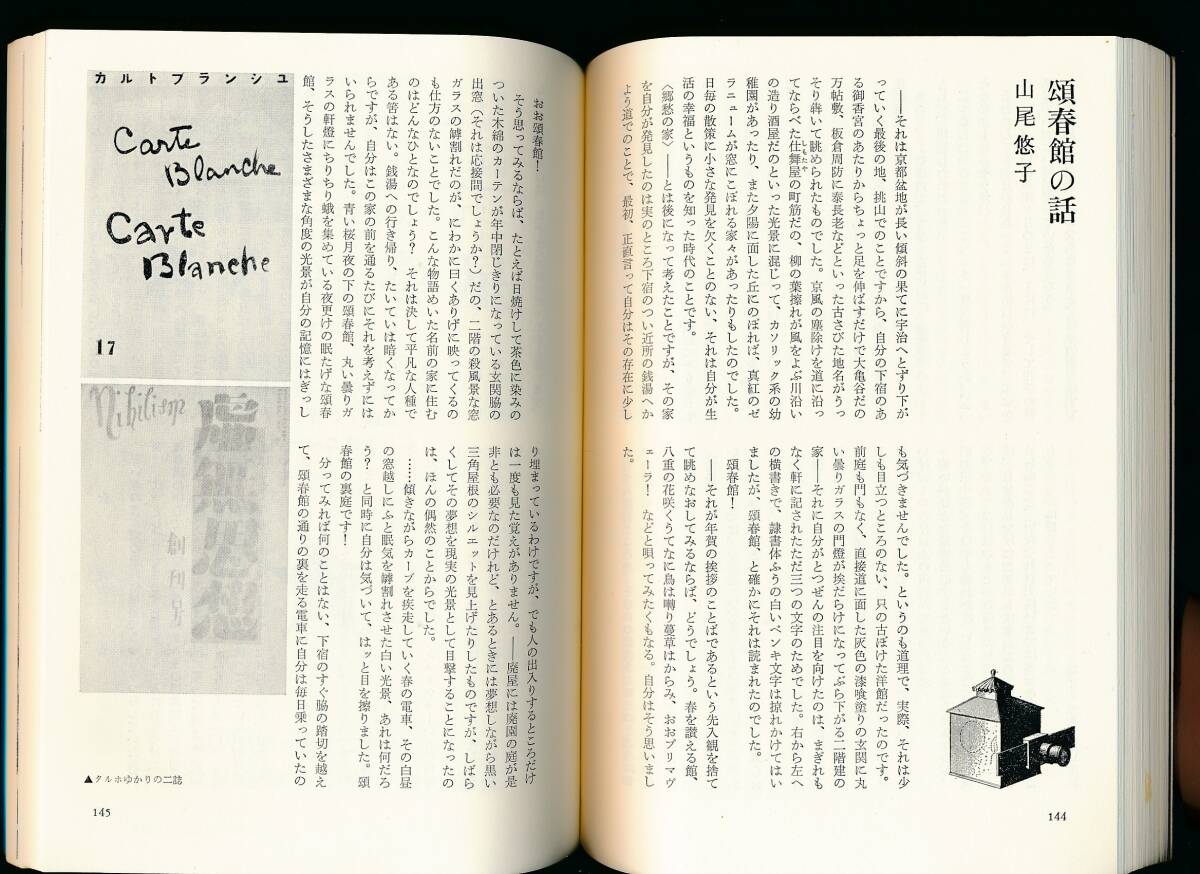 頌春館の話
山尾悠子
――それは京都盆地が長い傾斜の果てに宇治へとずり下が
っていく最後の地、桃山でのことですから、自分の下宿のあ
る御香宮のあたりからちょっと足を伸ばすだけで大亀谷だの
万帖敷、板倉周防に泰長老などといった古さびた地名がうっ
そり犇いて眺められたものでした。京風の塵除けを道に沿っ
てならべた仕舞屋の町筋だの、柳の葉擦れが風をよぶ川沿い
しもたや
の造り酒屋だのといった光景に混じって、カソリック系の幼
稚園があったり、また夕陽に面した丘にのぼれば、真紅のゼ
ラニュームが窓にこぼれる家々があったりもしたのでした。
日毎の散策に小さな発見を欠くことのない、それは自分が生
活の幸福というものを知った時代のことです。
〈郷愁の家〉――とは後になって考えたことですが、その家
を自分が発見したのは実のところ下宿のつい近所の銭湯へか
よう道でのことで、最初、正直言って自分はその存在に少し
も気づきませんでした。というのも道理で、実際、それは少
しも目立つところのない、只の古ぼけた洋館だったのです。
前庭も門もなく、直接道に面した灰色の漆喰塗りの玄関に丸
い曇りガラスの門燈が埃だらけになってぶら下がる二階建の
家――それに自分がとつぜんの注目を向けたのは、まぎれも
なく軒に記されたただ三つの文字のためでした。右から左へ
の横書きで、隷書体ふうの白いペンキ文字は掠れかけてはい
ましたが、頌春館、と確かにそれは読まれたのでした。
頌春館！
――それが年賀の挨拶のことばであるという先入観を捨て
て眺めなおしてみるならば、どうでしょう。春を讃える館、
八重の花咲くうてなに鳥は囀り蔓草はからみ、おおプリマヴ
ェーラ！　などと唄ってみたくもなる。自分はそう思いまし
た。
144
おお頌春館！
そう思ってみるならば、たとえば日焼けして茶色に染みの
ついた木綿のカーテンが年中閉じきりになっている玄関脇の
出窓（それは応接間でしょうか？）だの、二階の殺風景な窓
ガラスの罅割れだのが、にわかに曰くありげに映ってくるの
も仕方のないことでした。こんな物語めいた名前の家に住む
のはどんなひとなのでしょう？　それは決して平凡な人種で
ある筈はない。銭湯への行き帰り、たいていは暗くなってか
らですが、自分はこの家の前を通るたびにそれを考えずには
いられませんでした。青い桜月夜の下の頌春館、丸い曇りガ
ラスの軒燈にちりちり蛾を集めている夜更けの眠たげな頌春
館、そうしたさまざまな角度の光景が自分の記憶にはぎっし
り埋まっているわけですが、でも人の出入りするところだけ
は一度も見た覚えがありません。――廃屋には廃園の庭が是
非とも必要なのだけれど、とあるときには夢想しながら黒い
三角屋根のシルエットを見上げたりしたものですが、しばら
くしてその夢想を現実の光景として目撃することになったの
は、ほんの偶然のことからでした。
……傾きながらカーブを疾走していく春の電車、その白昼
の窓越しにふと眠気を罅割れさせた白い光景、あれは何だろ
う？　と同時に自分は気づいて、はッと目を擦りました。頌
春館の裏庭です！
分ってみれば何のことはない、下宿のすぐ脇の踏切を越え
て、頌春館の通りの裏を走る電車に自分は毎日乗っていたの
カルトブランシユ
Carte
Blanche
Carte
Blanche
17
Nihilism
虚無思想
創刊号
▲タルホゆかりの二誌
145